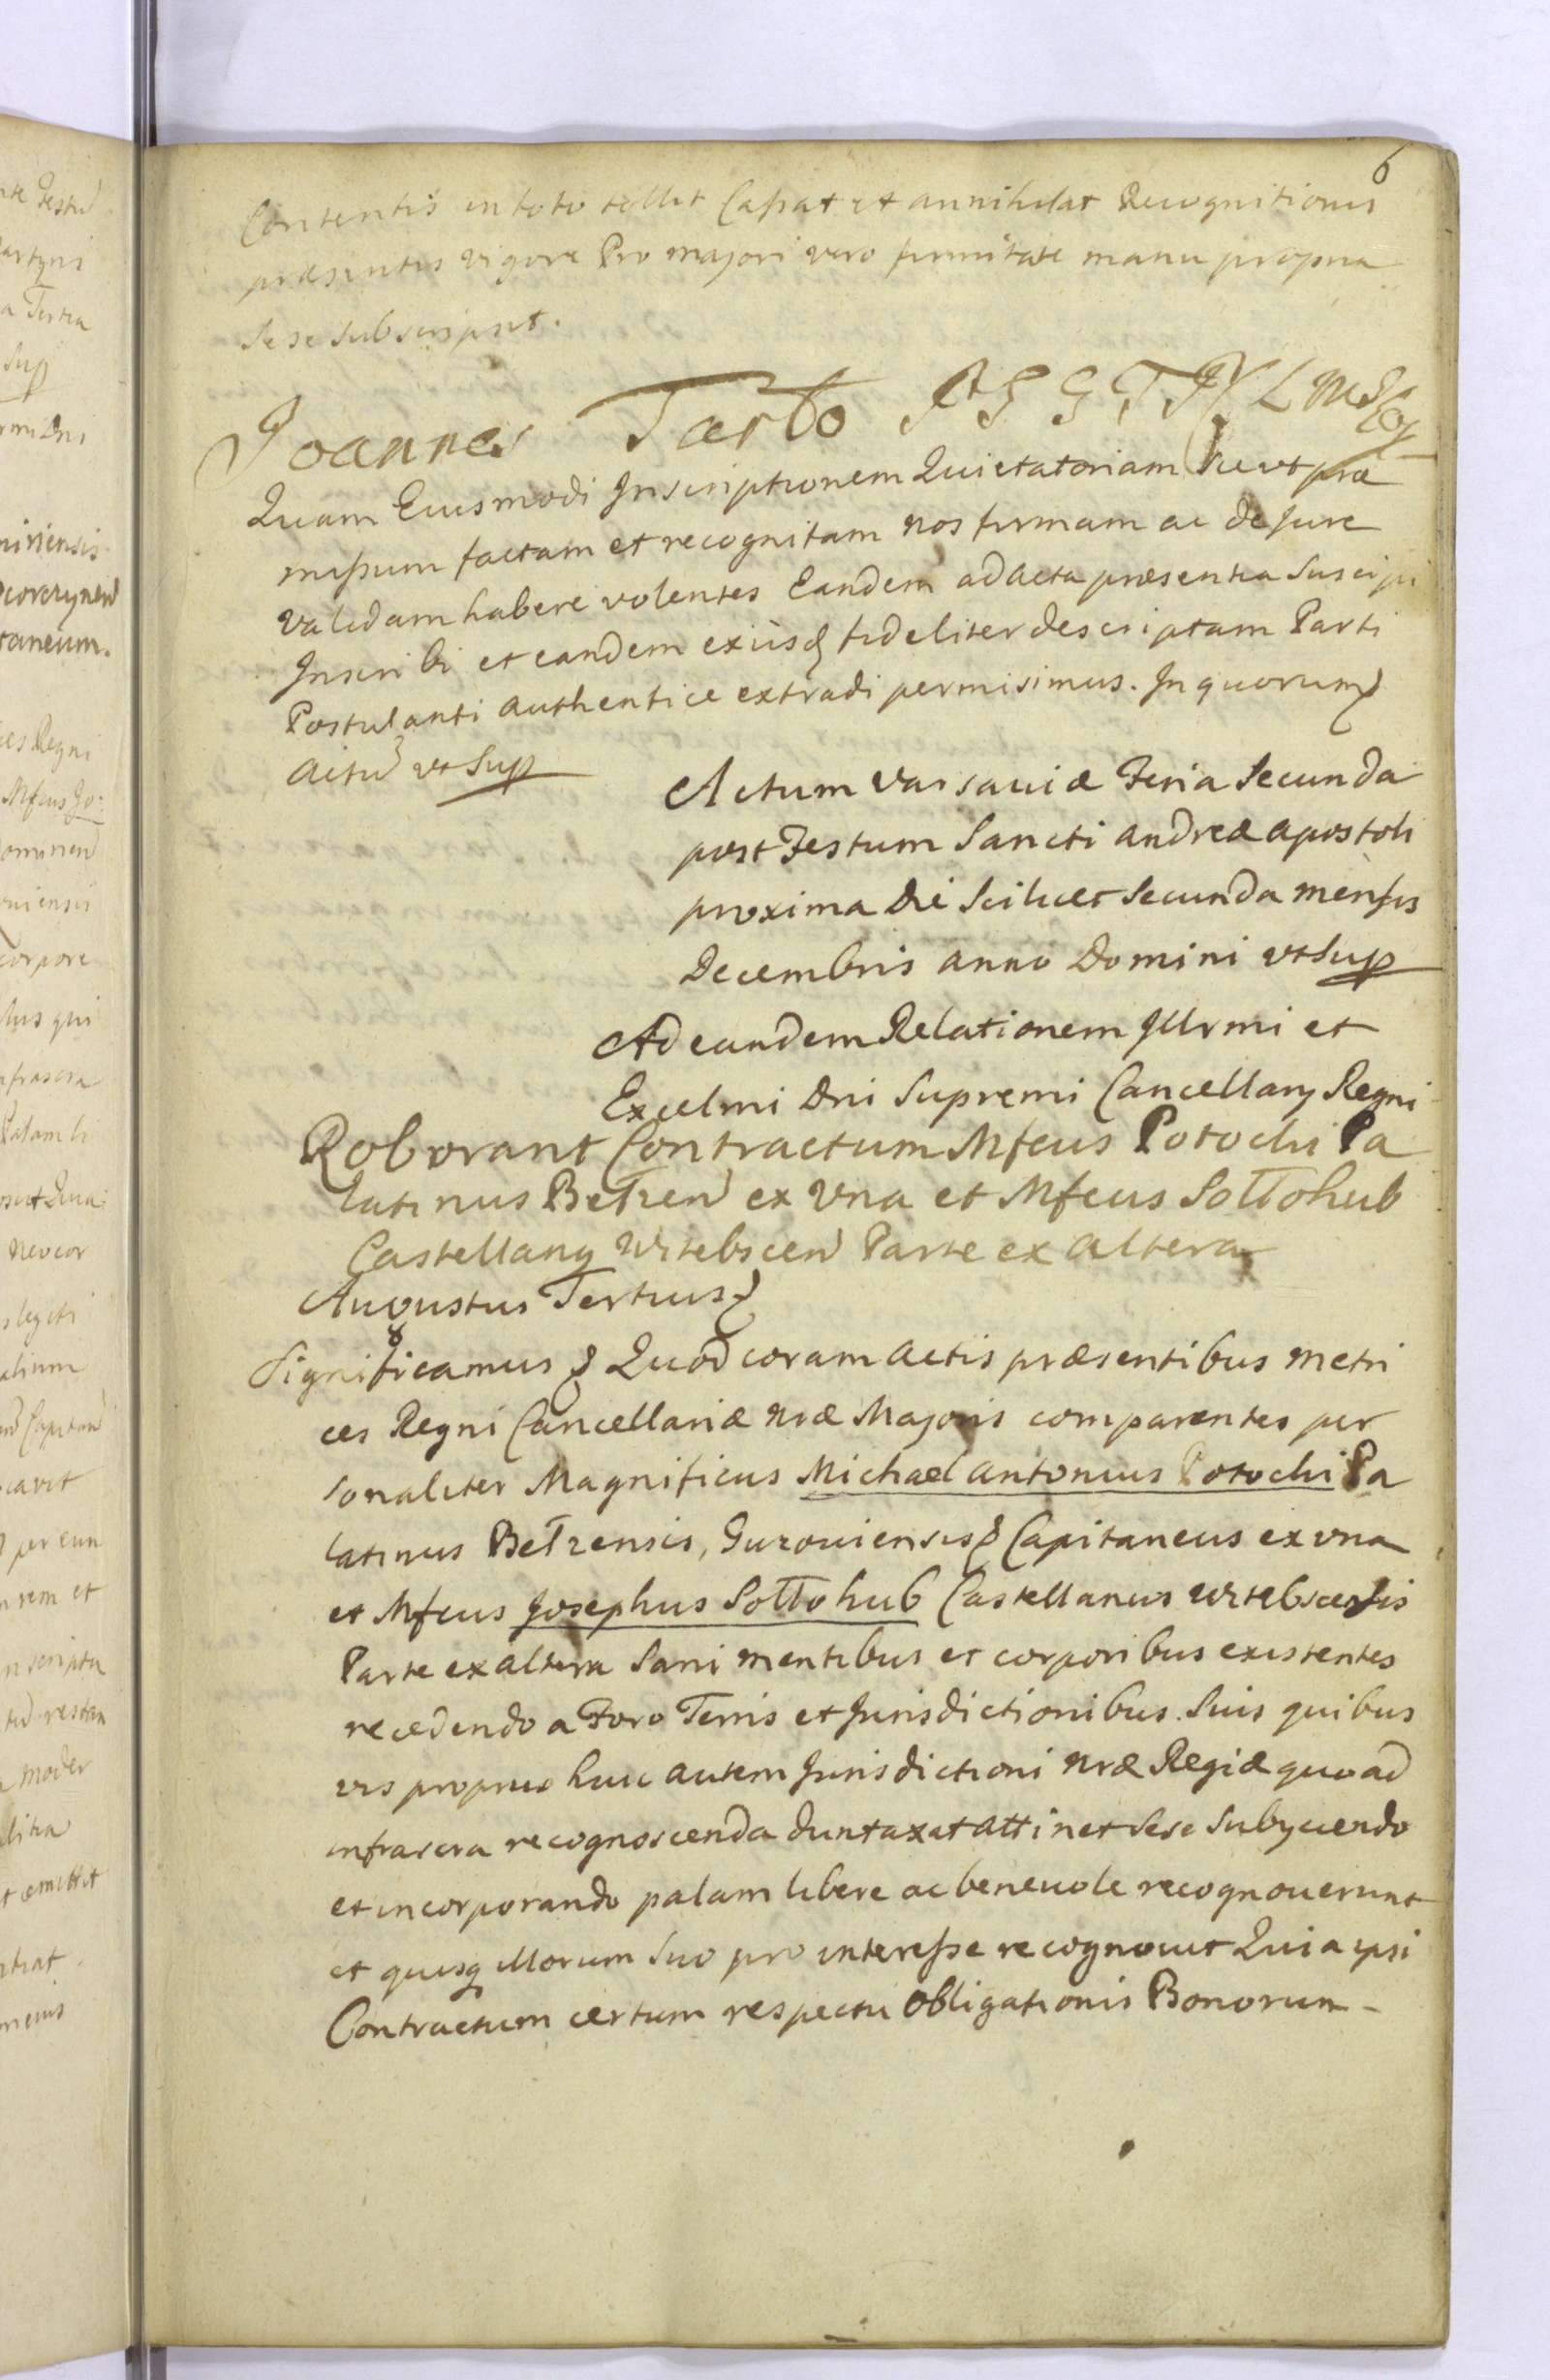 6
Contentis in toto tollit Cassat et annihilat Recognitionis
præsentis vigore Pro majori vero firmitate manu propria
Sese Subscripsit.
Joannes Tarło
Quam Eiusmodi Inscriptionem Quietatoriam Sicut præ
missum factam et recognitam nos firmam ac de Jure
validam habere volentes Eandem ad acta præsentia Suscipi
Inscribi et eandem exiisq fideliter descriptam Parti
Postulanti authentice extradi permisimus. In quorum
actu ut Sup
Actum Varsaviæ Feria Secunda
post Festum Sancti andreæ apostoli
proxima Die Scilicet Secunda mensis
Decembris anno Domini ut Sup
Ad eandem Relationem Illrmi et
Excelmi Dni Supremi Cancellarÿ Regni
Roborant Contractum Mfcus Potocki Pa
latinus Bełzen ex Vna et Mfcus Sołłohub
Castellanq Witebscen Parte ex altera
Augustus Tertius
Significamus Quod coram actis præsentibus metri
ces Regni Cancellariæ nræ Majoris comparentes per
sonaliter Magnificus Michael antonius Potocki Pa
latinus Bełzensis, Guroviensis Capitaneus ex vna
et Mfcus Josephus Sołłohub Castellanus Witebscensis
Parte ex altera Sani mentibus et corporibus existentes
recedendo a Foro Terris et Jurisdictionibus Suis quibus
vis proprÿs huic autem Jurisdictioni nræ Regiæ quoad
infrascra recognoscenda duntaxat attinet Sese Subÿciendo
et incorporando palam libere ac benevole recognoverunt
et quisq illorum Suo pro interesse recognovit Quia ipsi
Contractum certum respectu Obligationis Bonorum -